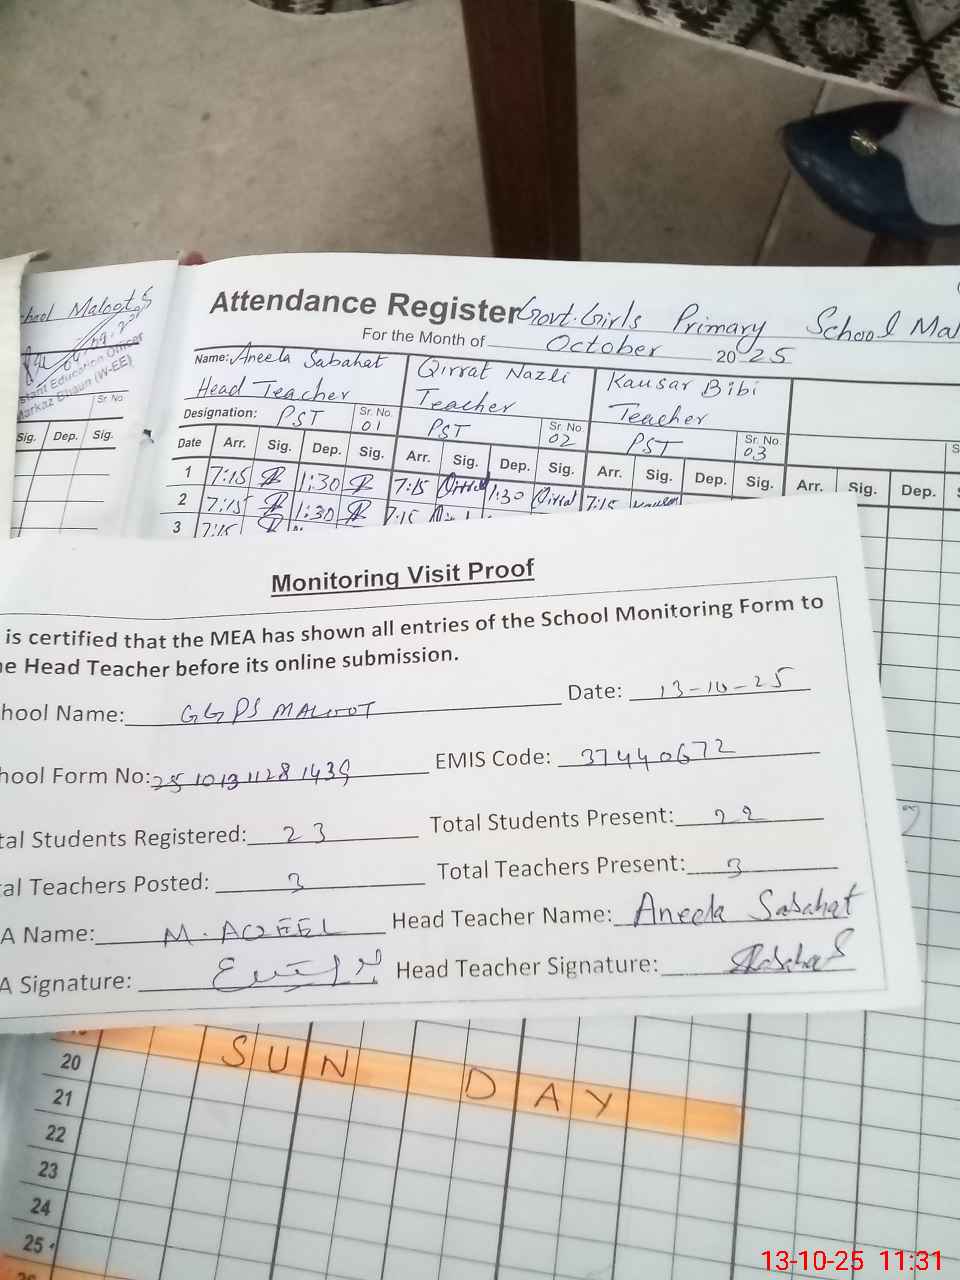 hool Maloot
stant Education Officer
Markaz Bhaun (W-EE)
Sr No
Sig. Dep. Sig.
Attendance Register Govt. Girls Primary School Mal
For the Month of October 2025
Name: Aneela Sabahat Qirrat Nazli Kausar Bibi
Head Teacher Teacher Teacher
Designation: PST Sr. No. 01 PST Sr. No 02 PST Sr. No. 03
Date Arr. Sig. Dep. Sig. Arr. Sig. Dep. Sig. Arr. Sig. Dep. Sig. Arr. Sig. Dep.
1 7:15 1:30 7:15 Qirrat 1:30 Qirrat 7:15
2 7:15 1:30 7:15
3 7:15
Monitoring Visit Proof
is certified that the MEA has shown all entries of the School Monitoring Form to
e Head Teacher before its online submission.
hool Name: GGPS MALOOT Date: 13-10-25
hool Form No: EMIS Code: 37440672
tal Students Registered: 23 Total Students Present: 22
tal Teachers Posted: 3 Total Teachers Present: 3
A Name: M. AQEEL Head Teacher Name: Aneela Sabahat
A Signature: Head Teacher Signature:
SUN DAY
20
21
22
23
24
25
13-10-25 11:31